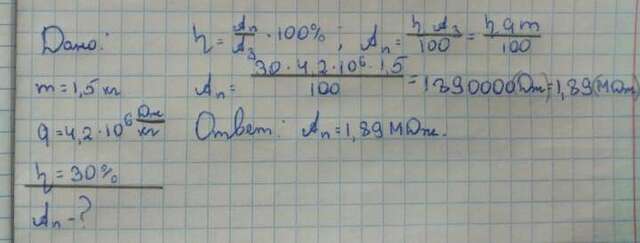 Дано:
m = 1,5 кг
q = 4,2 · 10⁶ Дж/кг
η = 30%
Aп - ?
η = Aп/Aз · 100% ; Aп = η Aз/100 = η q m/100
Aп = 30 · 4,2 · 10⁶ · 1,5/100 = 1890000(Дж) = 1,89(МДж)
Ответ: Aп = 1,89 МДж.